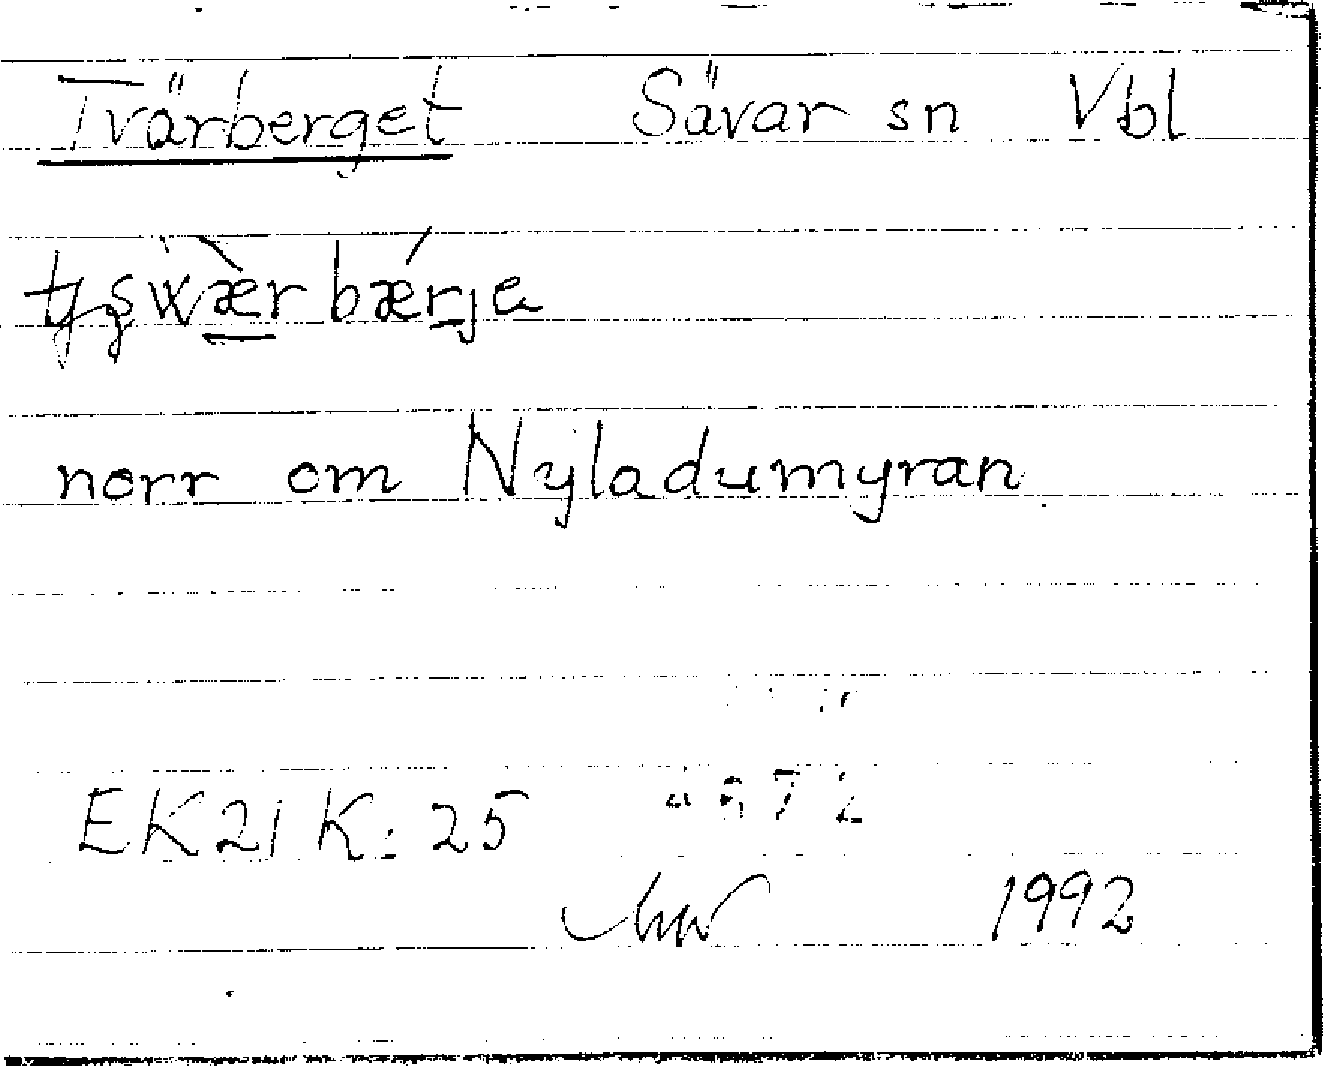 Tvärberget Sävar sn Vbl
norr om Nyladumyran
EK21 K: 25
1992